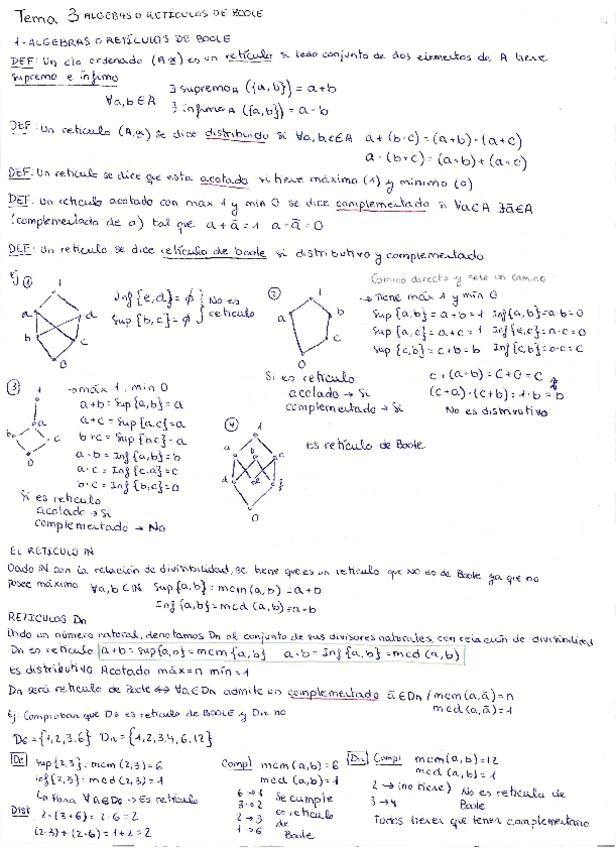 Tema 3 ALGEBRAS O RETÍCULOS DE BOOLE
1.- ALGEBRAS O RETÍCULOS DE BOOLE
DEF: Un cto ordenado (A,≼) es un retículo si todo conjunto de dos elementos de A tiene
supremo e ínfimo
∀a,b∈A ∃ supremo A ({a,b}) = a+b
∃ ínfimo A ({a,b}) = a·b
DEF: Un retículo (A,≼) se dice distributivo si ∀a,b,c∈A a+(b·c)=(a+b)·(a+c)
a·(b+c)=(a·b)+(a·c)
DEF: Un retículo se dice que esta acotado si tiene máximo (1) y mínimo (0)
DEF: Un retículo acotado con max 1 y min 0 se dice complementado si ∀a∈A ∃ā∈A
(complementado de a) tal que a+ā=1 a·ā=0
DEF: Un retículo se dice retículo de boole si distributivo y complementado
Camino directo y solo un camino
Ej ①
1
a
d
b
c
0
Inf{e,d}=∅
Sup{b,c}=∅
No es
retículo
②
1
a
b
c
0
→ Tiene máx 1 y min 0
Sup{a,b}=a+b=1 Inf{a,b}=a·b=0
Sup{a,c}=a+c=1 Inf{a,c}=a·c=0
Sup{c,b}=c+b=b Inf{c,b}=b·c=c
Si es retículo
acotado → Si
complementado → Si
c+(a·b)=c+0=c
(c+a)·(c+b)=1·b=b
No es distributivo
③
1
a
b
c
0
→ máx 1, min 0
a+b=Sup{a,b}=a
a+c=Sup{a,c}=a
b+c=Sup{b,c}=a
a·b=Inf{a,b}=b
a·c=Inf{c,a}=c
b·c=Inf{b,c}=0
Si es retículo
acotado → Si
complementado → No
④
1
a
b
c
d
e
f
0
Es retículo de Boole
EL RETICULO IN
Dado IN con la relación de divisibilidad, se tiene que es un retículo que NO es de Boole ya que no
posee máximo ∀a,b∈IN Sup{a,b}=mcm(a,b)=a+b
Inf{a,b}=mcd(a,b)=a·b
RETICULOS Dn
Dado un número natural, denotamos Dn al conjunto de sus divisores naturales, con relación de divisibilidad
Dn es retículo a+b=Sup{a,b}=mcm{a,b} a·b=Inf{a,b}=mcd(a,b)
es distributivo Acotado máx=n mín=1
Dn será retículo de Boole ⇔ ∀a∈Dn admite un complementado ā∈Dn / mcm(a,ā)=n
mcd(a,ā)=1
Ej: Comprobar que D6 es retículo de BOOLE y D12 no
D6={1,2,3,6} D12={1,2,3,4,6,12}
D6 Sup{2,3}=mcm(2,3)=6
inf{2,3}=mcd(2,3)=1
↳ Para ∀a∈D6 → Es retículo
Dist 2·(3+6)=2·6=2
(2·3)+(2·6)=1+2=2
Compl mcm(a,b)=6
mcd(a,b)=1
6→1
3→2
2→3
1→6
Se cumple
es retículo
de
Boole
D12 Compl mcm(a,b)=12
mcd(a,b)=1
2→(no tiene)
3→4
No es retículo de
Boole
Todos tienen que tener complementario